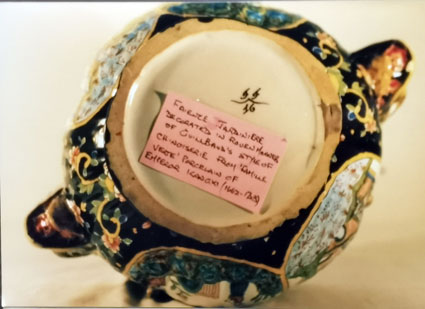 55
56
FAIENCE JARDINIERE
DECORATED IN ROUEN MANNER
OF GUILLIBAUD'S STYLE OF
CHINOISERIE FROM "FAMILLE
VERTE" PORCELAIN OF
EMPEROR